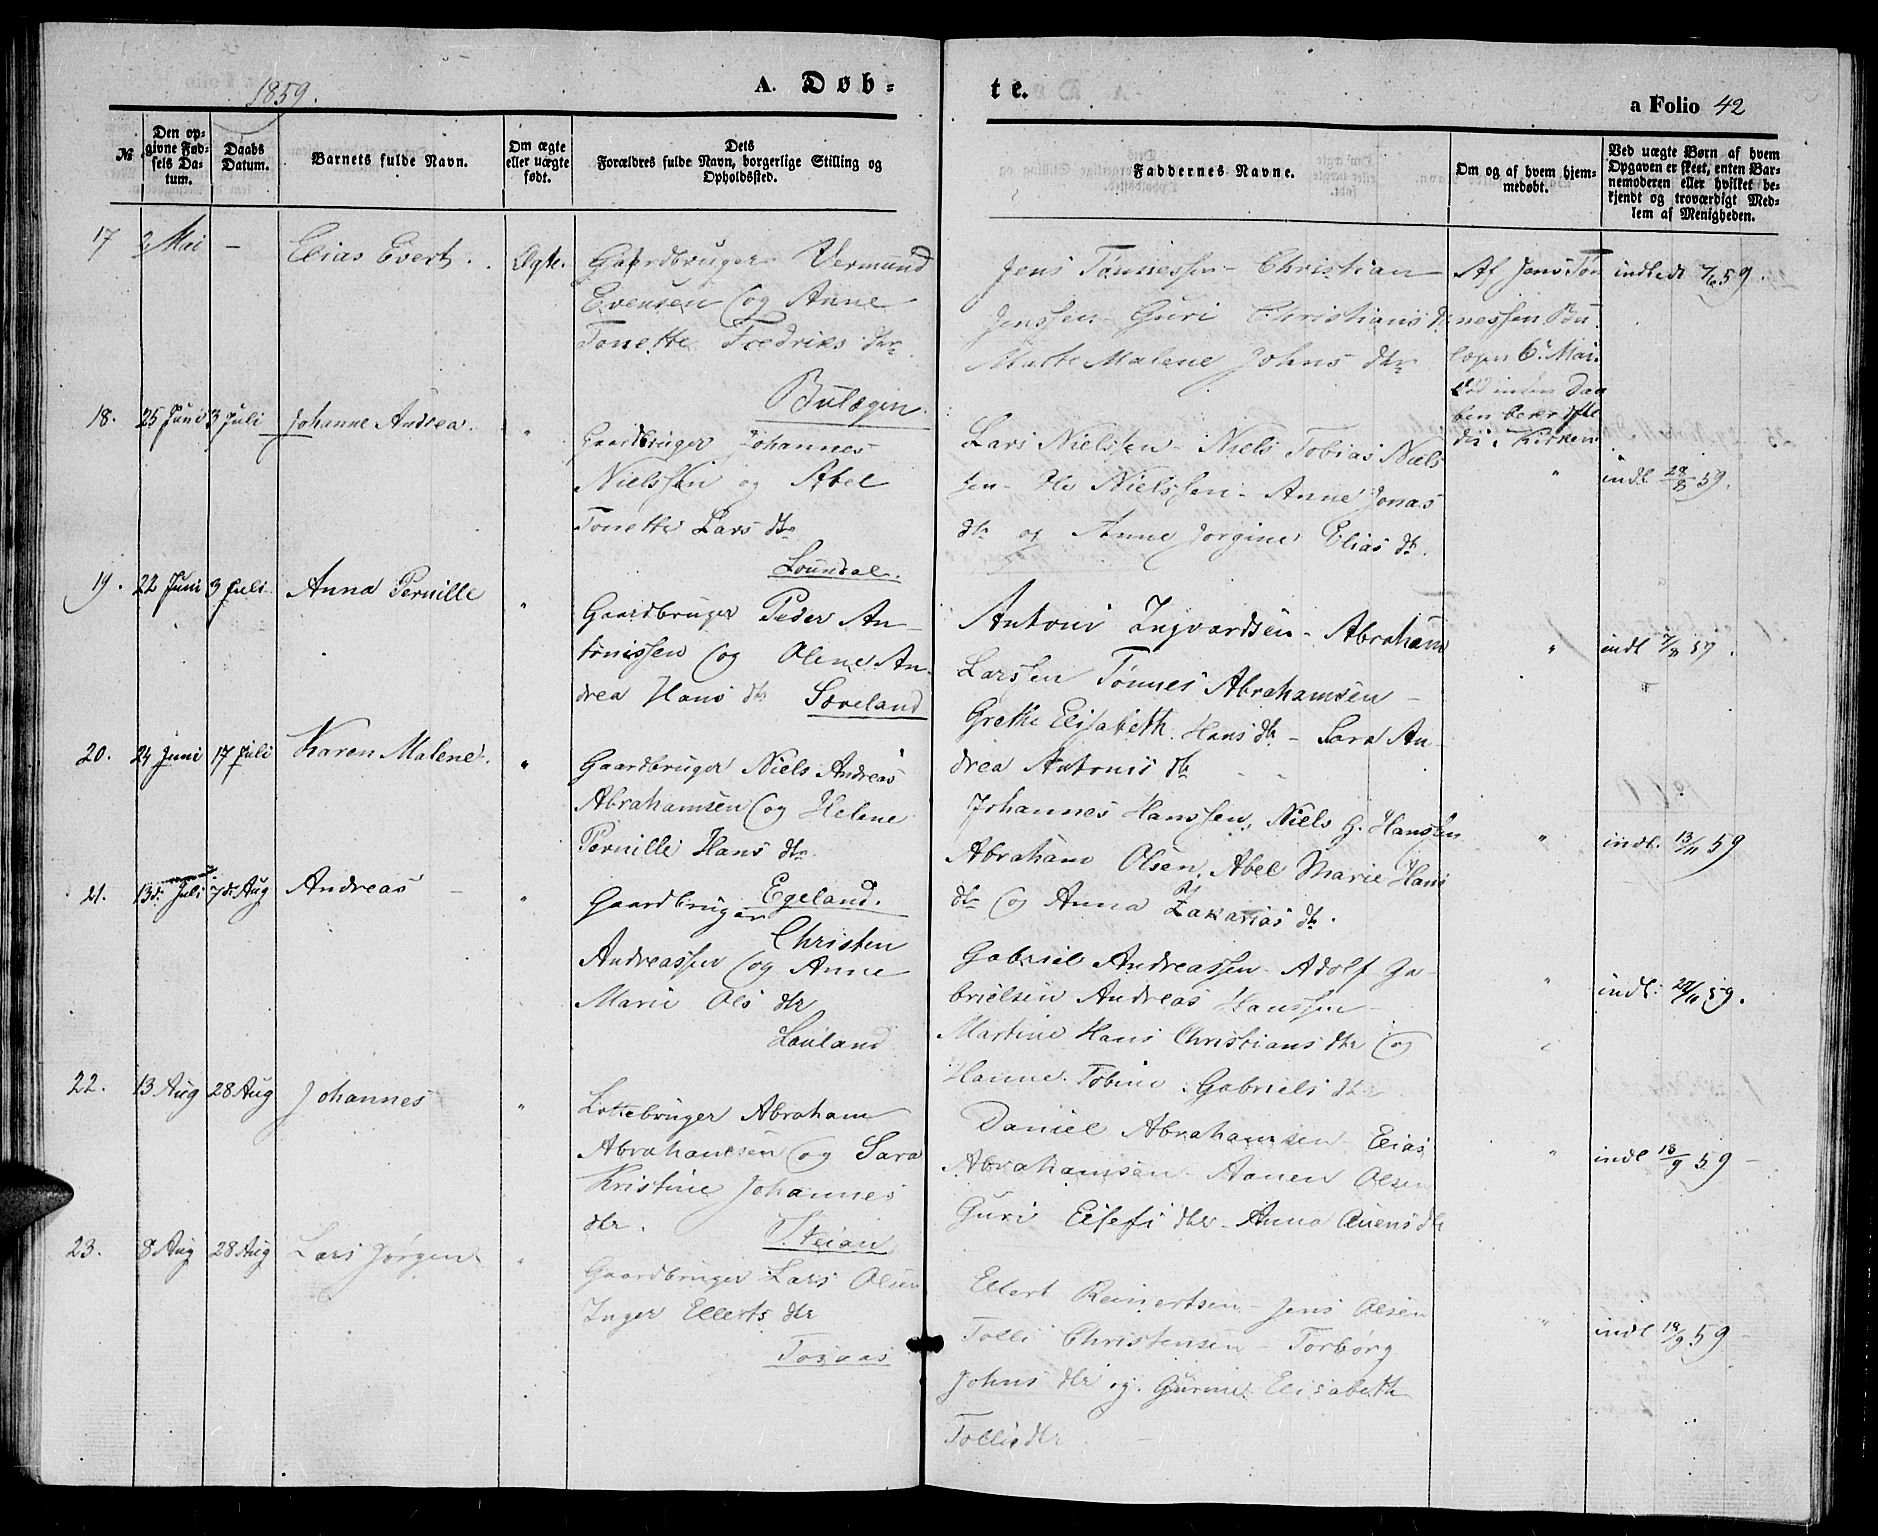 1859.
A. Døb-
te.
a Folio 42
№
Den op-
givne Fød-
sels Da-
tum.
Daabs
Datum.
Barnets fulde Navn.
Om ægte
eller uægte
født.
Dets
Forældres fulde Navn, borgerlige Stilling og
Opholdssted.
Faddernes Navne.
Om og af hvem hjem-
medøbt.
Ved uægte Børn af hvem
Opgaven er skeet, enten Bar-
nemoderen eller hvilket be-
kjendt og troværdigt Med-
lem af Menigheden.
17 2 Mai — Elias Evert. Ægte.
Gaardbruger Vermund
Evensen og Anne
Tonette Fredriks dtr
Jens Tønnessen - Christian
Jenssen - Guri Christians dt
Malene Johns dtr
Af Jens Tøn
nessen
6 Mai.
i Kirken
indledt 7/6 59.
18. 25 Juni 3 Juli Johanne Andrea. "
Gaardbruger Johannes
Nielssen og Abel
Tonette Lars dtr
Loundal.
Lars Nielssen - Niels Tobias Niels
sen - Ole Nielssen - Anne Jonas
dtr og Anne Jorgine Elias dt.
"
indl. 28/8 59.
19. 22 Juni 3 Juli Anna Pernille "
Gaardbruger Peder An-
tonissen og Olene An-
drea Hans dtr Søreland
Antoni Ingvardsen - Abraham
Larssen Tønnes Abrahamsen -
Grethe Elisabeth Hans dtr - Sara An-
drea Antonis dtr
"
indl 7/8 59.
20. 24 Juni 17 Juli Karen Malene. "
Gaardbruger Niels Andreas
Abrahamsen og Helene
Pernille Hans dtr
Egeland.
Johannes Hanssen, Niels G. Hanssen
Abraham Olsen, Abel Marie Hans
dtr og Anna Zakarias dtr.
"
indl. 13/11 59
21. 13d. Juli 7d. Aug Andreas - "
Gaardbruger
Christen
Andreassen og Anne
Marie Ols dtr
Lauland
Gabriel Andreassen - Adolf Ga-
brielsen Andreas Hanssen -
Martine Hans Christians dtr og
Hanne Tobine Gabriels dtr
"
indl. 20/11 59.
22. 13 Aug 28 Aug Johannes "
Abraham
Abrahamsen og Sara
Kristine Johannes
dtr.
Daniel Abrahamsen - Elias
Abrahamsen - Aanen Olsen
Guri Elsefs dtr - Anna
"
indl 18/9 59 -
23. 8 Aug 28 Aug Lars Jørgen "
Gaardbruger Lars Olsen
Inger Ellerts dtr
Ellert Reinertsen - Jens Olsen
Tolli Christensen - Torborg
Johns dtr og Gurine Elisabeth
Tollis dtr
"
indl 18/9 59 -